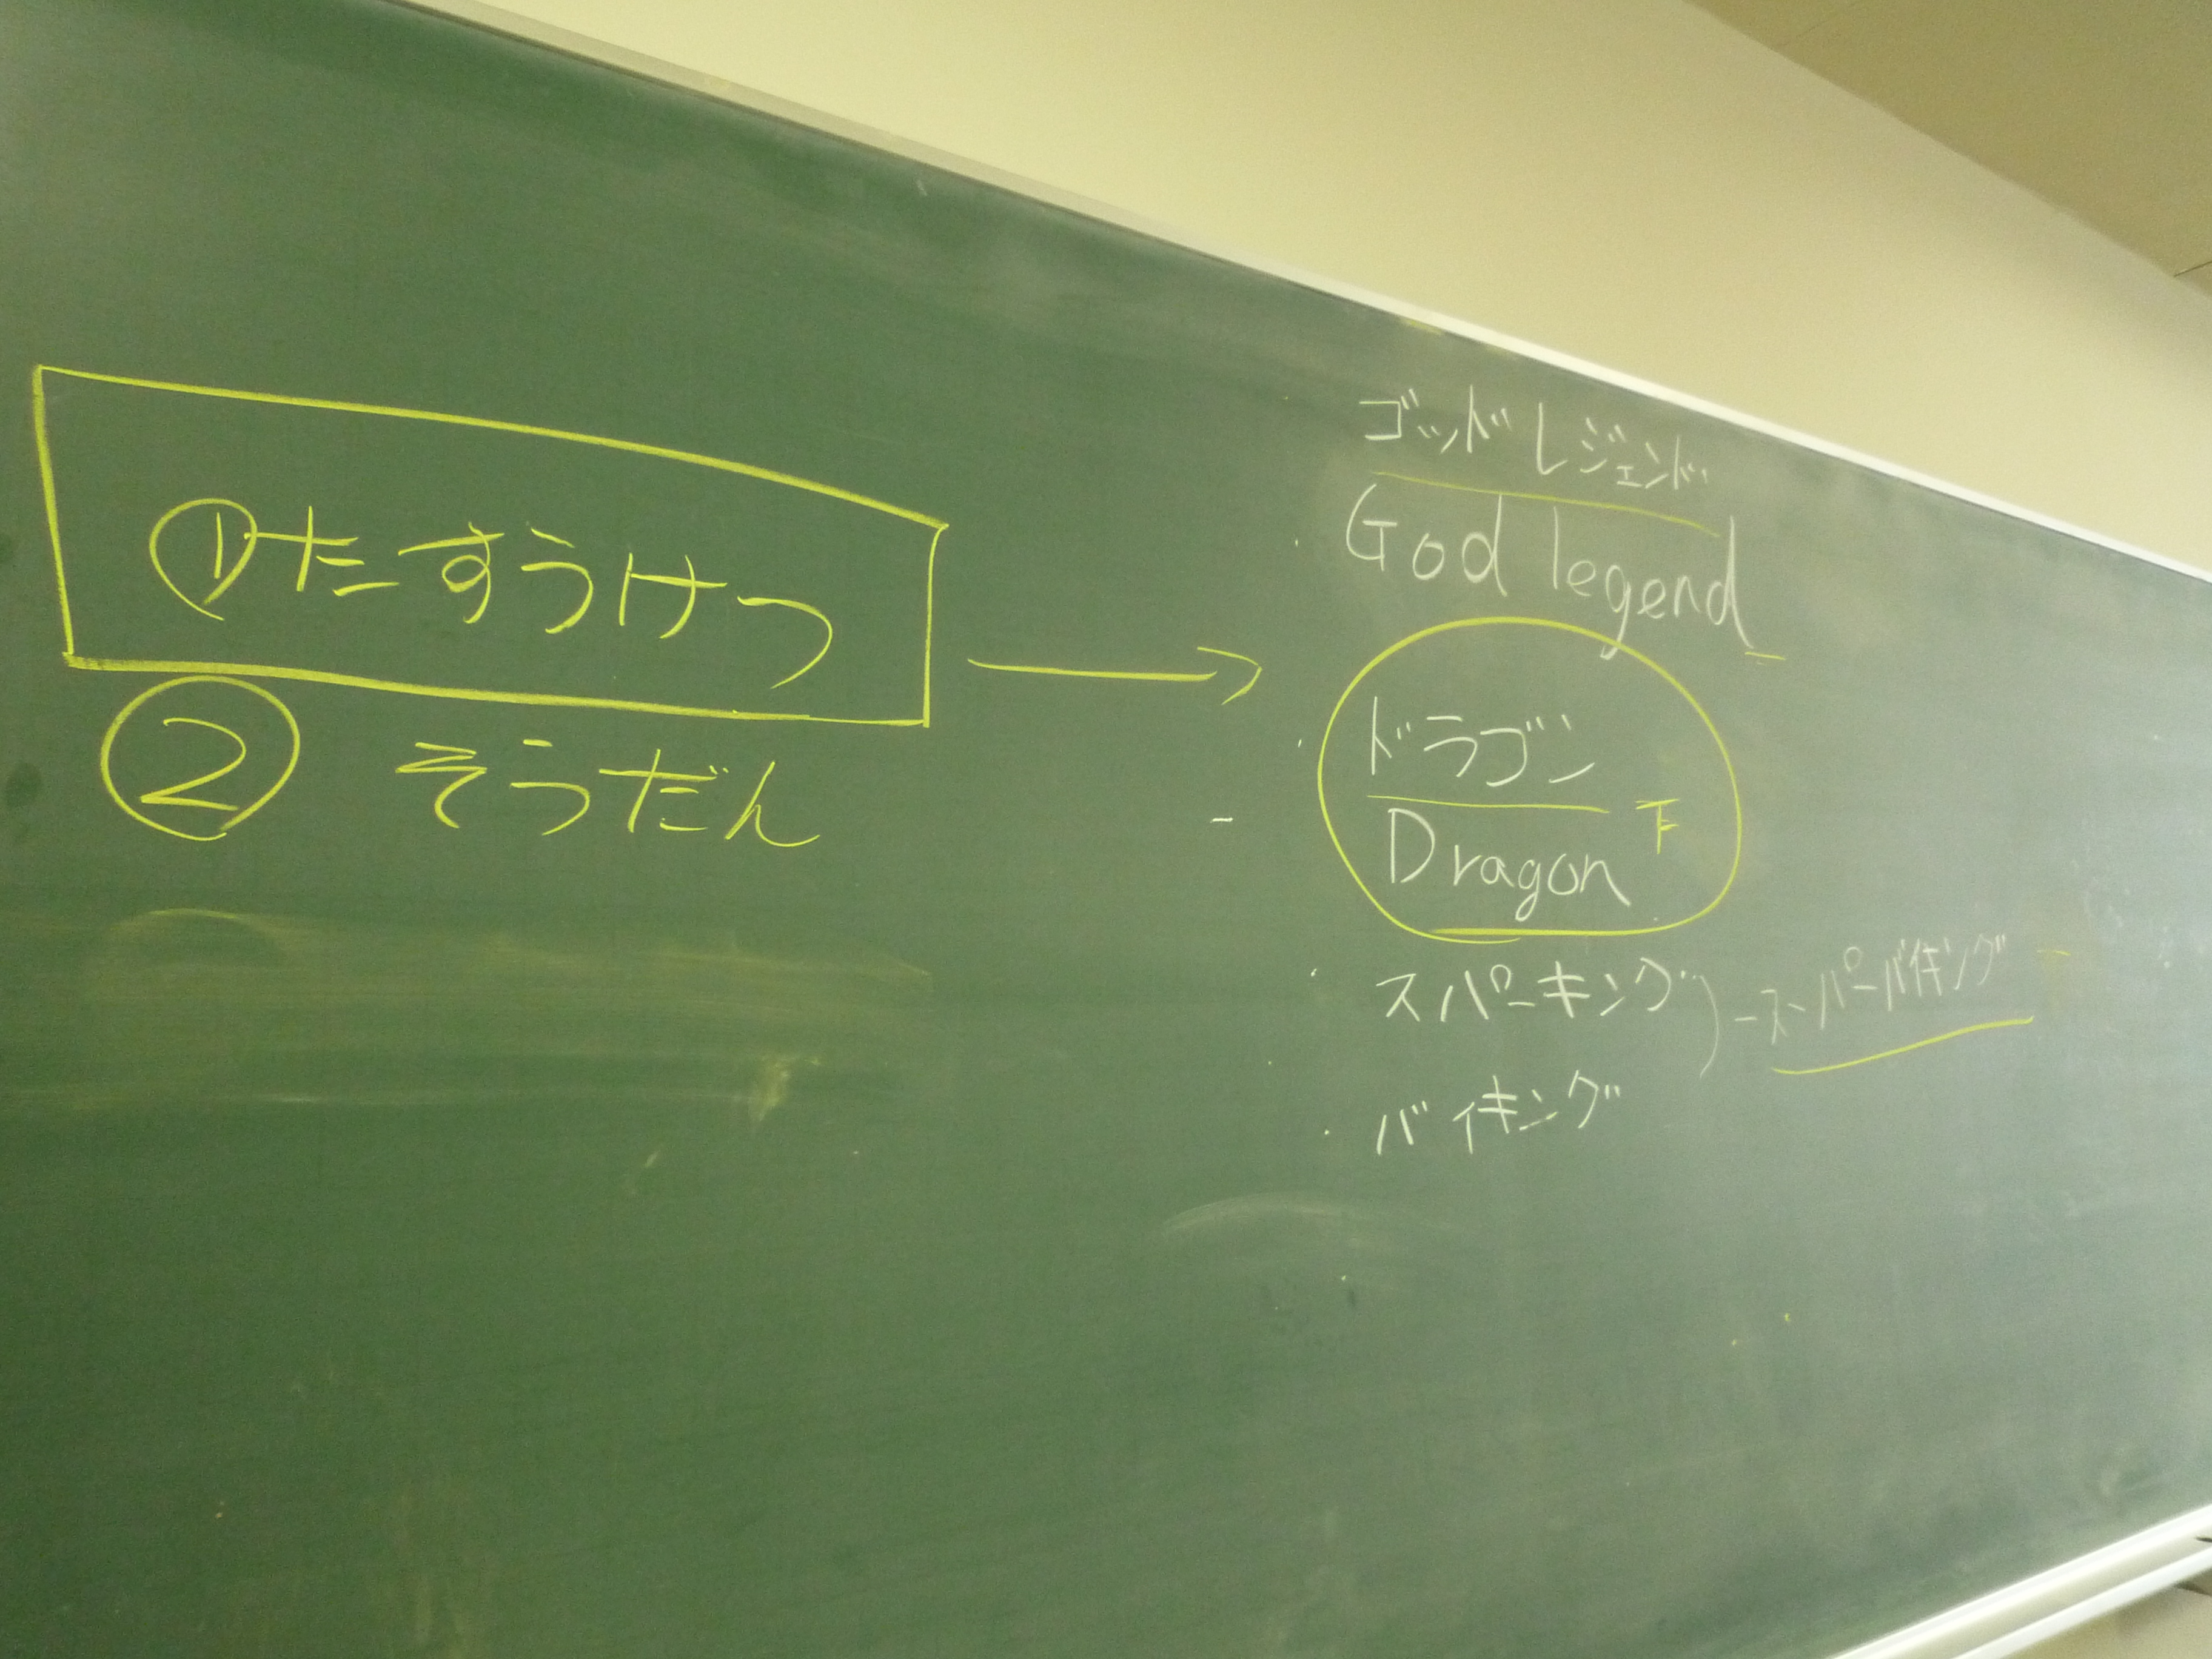 ①たすうけつ
② そうだん
ゴッドレジェンド
God legend
ドラゴン
Dragon
スパーキング
スーパーバイキング
バイキング